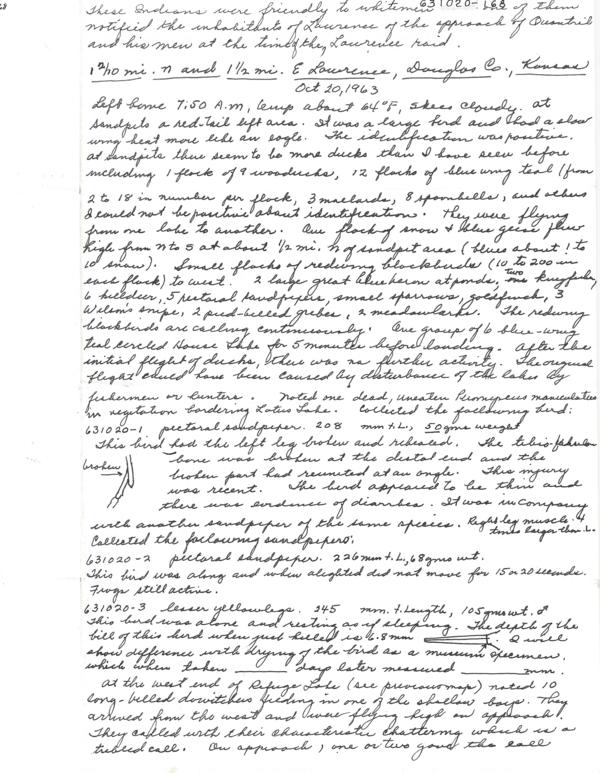 These Indians were friendly to whitemen 631020- 168 of them
notified the inhabitants of Lawrence of the approach of Quantril
and his men at the time of the Lawrence raid.
1 2/10 mi. N and 1 1/2 mi. E Lawrence, Douglas Co., Kansas
Oct 20, 1963
Left home 7:50 A.M, temp about 64°F, skies cloudy. at
sandpits a red-tail left area. It was a large bird and had a slow
wing beat more like an eagle. The identification was positive.
at sandpits there seem to be more ducks than I have seen before
including 1 flock of 9 woodducks, 12 flocks of blue wing teal (from
2 to 18 in number per flock, 3 mallards, 8 spoonbills, and others
I could not be positive about identification. They were flying
from one lake to another. One flock of snow & blue geese flew
high from N to S at about 1/2 mi. N of sandpit area (blues about 1 to
10 snow). Small flocks of redwing blackbirds (10 to 200 in
each flock) to west. 2 large great blue heron at ponds, two kingfisher,
6 killdeer, 5 pectoral sandpipers, small sparrows, goldfinch, 3
Wilson's snipe, 2 pied-billed grebes, 2 meadowlarks. The redwing
blackbirds are calling continuously. One group of 6 blue-wing
teal circled House Lake for 5 minutes before landing. After the
initial flight of ducks, there was no further activity. The original
flight could have been caused by disturbance of the lakes by
fishermen or hunters. Noted one dead, uneaten Peromyscus maniculatus
in vegetation bordering Lotus Lake. Collected the following bird:
631020-1 pectoral sandpiper. 208 mm t.L., 50 gms weight
This bird had the left leg broken and rehealed. The tibio-fibular
broken bone was broken at the distal end and the
broken part had reunited at an angle. This injury
was recent. The bird appeared to be thin and
there was evidence of diarrhea. It was in company
with another sandpiper of the same species. Right leg muscle 4
times larger than L.
Collected the following sandpipers:
631020-2 pectoral sandpiper. 226 mm t.L, 68 gms wt.
This bird was along and when alighted did not move for 15 or 20 seconds.
Frogs still active.
631020-3 lesser yellowlegs. 245 mm. t. length, 105 gms wt. ♂
This bird was alone and resting as if sleeping. The depth of the
bill of this bird when just killed is 6.8 mm. I will
show difference with drying of the bird as a museum specimen,
which when taken ____ days later measured ____ mm.
At the west end of Refuge Lake (see previous map) noted 10
long-billed dowitchers feeding in one of the shallow bays. They
arrived from the west and were flying high on approach.
They called with their characteristic chattering which is a
trebled call. On approach, one or two gave the call